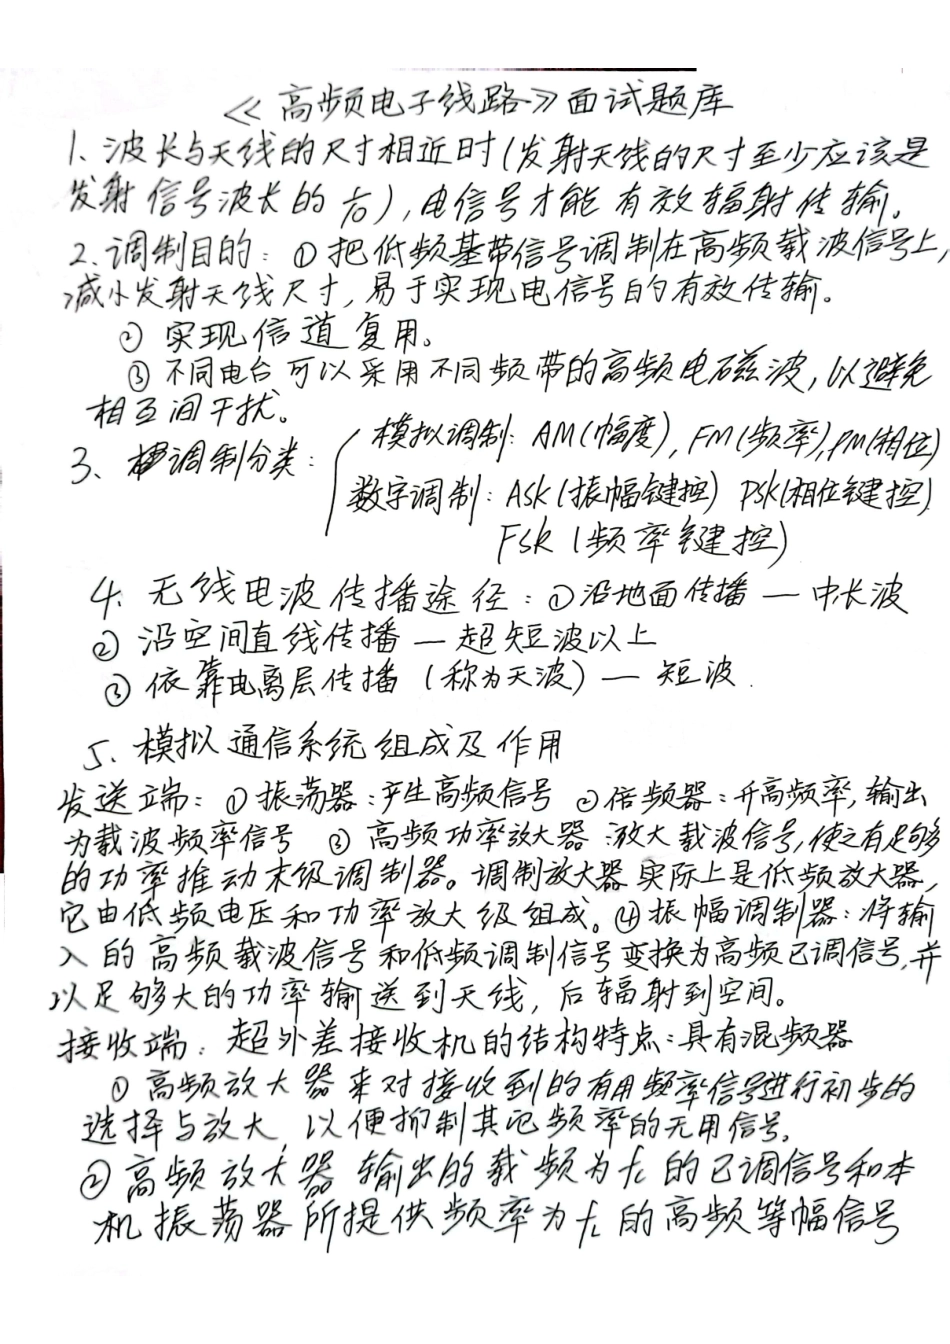 《高频电子线路》面试题库
1、波长与天线的尺寸相近时(发射天线的尺寸至少应该是
发射信号波长的1/10),电信号才能有效辐射传输。
2、调制目的:①把低频基带信号调制在高频载波信号上,
减小发射天线尺寸,易于实现电信号的有效传输。
②实现信道复用。
③不同电台可以采用不同频带的高频电磁波,以避免
相互间干扰。
3、调制分类:
模拟调制:AM(幅度),FM(频率),PM(相位)
数字调制:ASK(振幅键控) PSK(相位键控)
FSK(频率键控)
4、无线电波传播途径:①沿地面传播—中长波
②沿空间直线传播—超短波以上
③依靠电离层传播(称为天波)—短波.
5、模拟通信系统组成及作用
发送端:①振荡器:产生高频信号 ②倍频器:升高频率,输出
为载波频率信号 ③高频功率放大器:放大载波信号,使之有足够
的功率推动末级调制器。调制放大器实际上是低频放大器,
它由低频电压和功率放大级组成。④振幅调制器:将输
入的高频载波信号和低频调制信号变换为高频已调信号,并
以足够大的功率输送到天线,后辐射到空间。
接收端:超外差接收机的结构特点:具有混频器
①高频放大器来对接收到的有用频率信号进行初步的
选择与放大,以便抑制其它频率的无用信号.
②高频放大器输出的载频为fc的已调信号和本
机振荡器所提供频率为fL的高频等幅信号